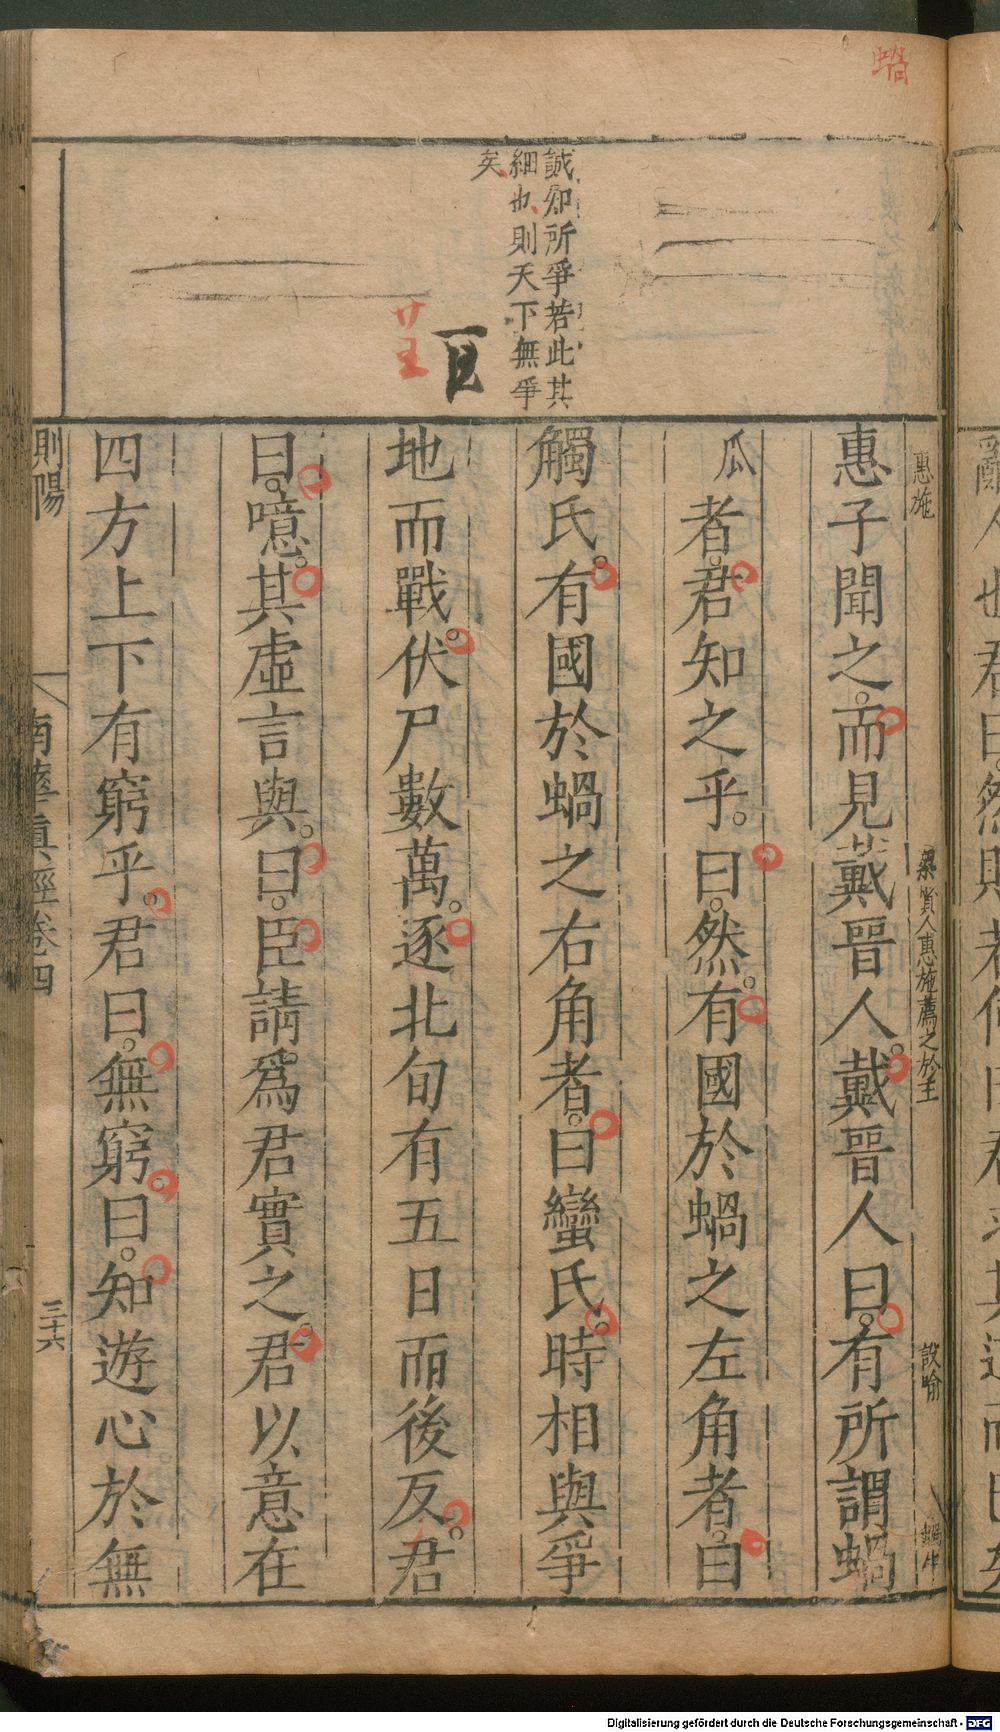 蝸
誠知所爭若此其
細也則天下無爭
矣
廿
王
惠施
梁賢人惠施薦之於王
設喻
蝸牛
惠子聞之。而見戴晉人。戴晉人曰。有所謂蝸
瓜
者。君知之乎。曰。然。有國於蝸之左角者。曰
觸氏。有國於蝸之右角者。曰蠻氏。時相與爭
地而戰。伏尸數萬。逐北旬有五日而後反。君
曰。噫。其虛言與。曰。臣請為君實之。君以意在
四方上下有窮乎。君曰。無窮。曰。知遊心於無
則陽
南華真經卷四
三十六
Digitalisierung gefördert durch die Deutsche Forschungsgemeinschaft - DFG